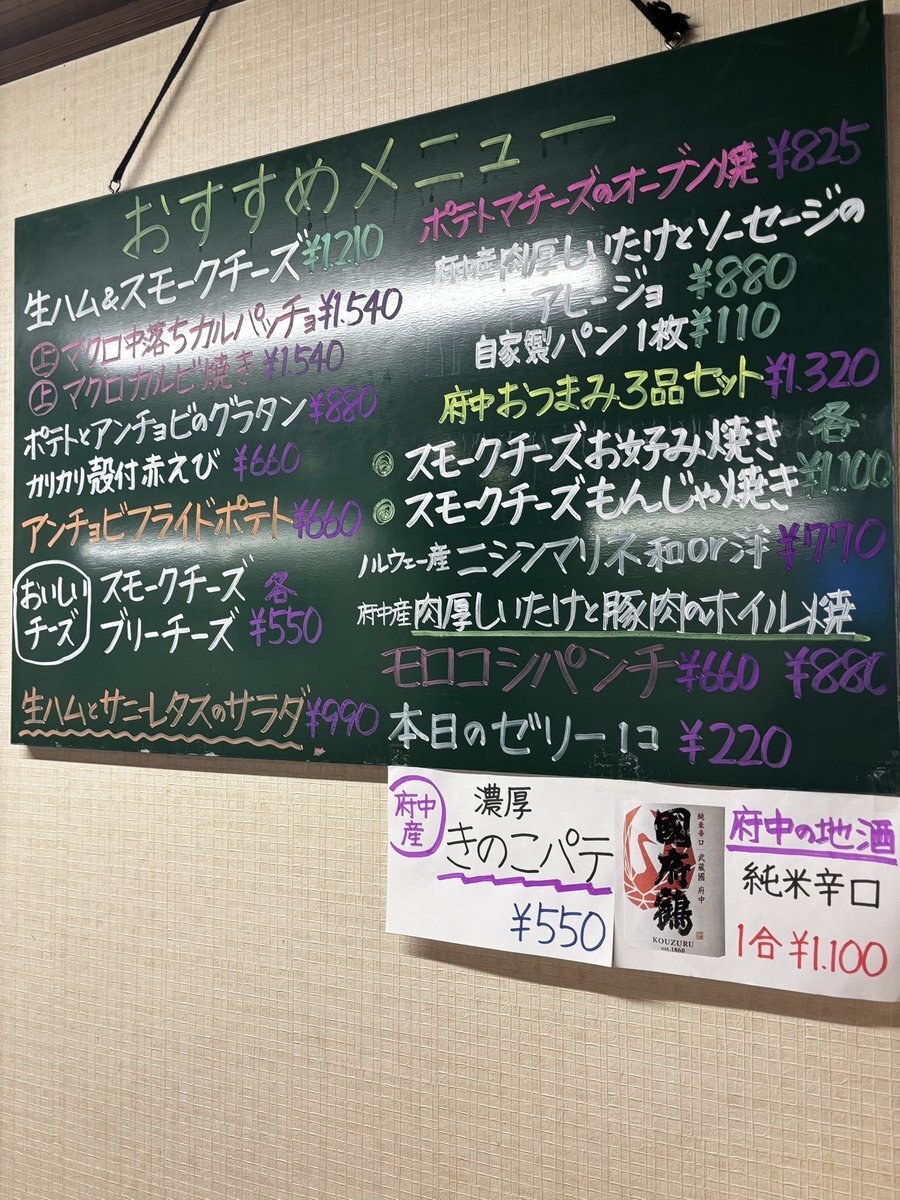 おすすめメニュー
生ハム&スモークチーズ ¥1.210
㊤マグロ中落ちカルパッチョ ¥1.540
㊤マグロカルビ焼き ¥1.540
ポテトとアンチョビのグラタン ¥880
カリカリ殻付赤えび ¥660
アンチョビフライドポテト ¥660
おいしいチーズ
スモークチーズ 各
ブリーチーズ ¥550
生ハムとサニーレタスのサラダ ¥990
ポテトマチーズのオーブン焼 ¥825
府中産肉厚しいたけとソーセージの
アヒージョ ¥880
自家製パン1枚 ¥110
府中おつまみ3品セット ¥1.320
スモークチーズお好み焼き 各
スモークチーズもんじゃ焼き ¥1.100
ノルウェー産 ニシンマリネ和or洋 ¥770
府中産肉厚しいたけと豚肉のホイル焼
¥880
モロコシパンチ ¥660
本日のゼリー1コ ¥220
府中産
濃厚
きのこパテ
¥550
純米辛口 武蔵國 府中
國府鶴
KOUZURU
est.1860
府中の地酒
純米辛口
1合 ¥1.100